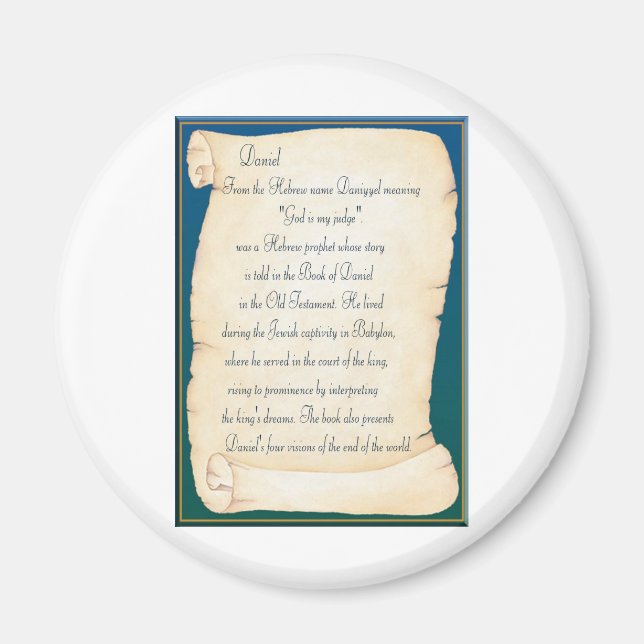 Daniel
From the Hebrew name Daniyyel meaning
"God is my judge".
was a Hebrew prophet whose story
is told in the Book of Daniel
in the Old Testament. He lived
during the Jewish captivity in Babylon,
where he served in the court of the king,
rising to prominence by interpreting
the king's dreams. The book also presents
Daniel's four visions of the end of the world.